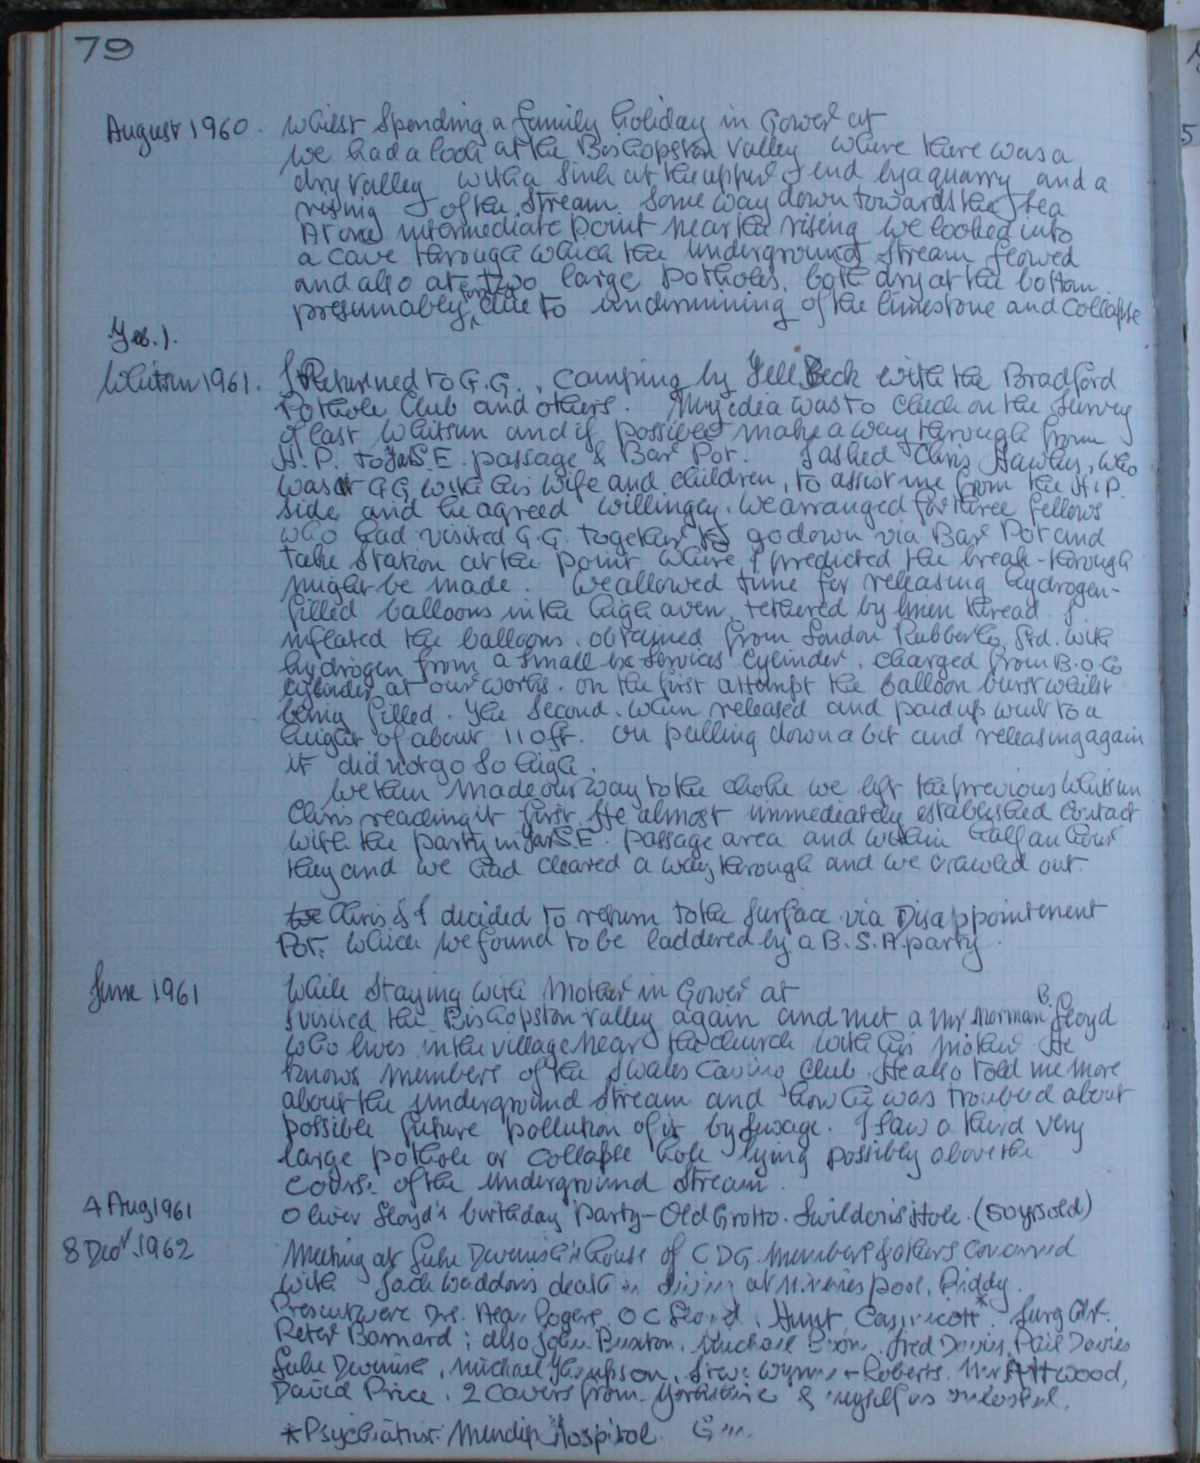 79
August 1960. Whilst spending a family holiday in Gower at
we had a look at the Bishopston Valley where there was a
dry valley with a sink at the upper end by a quarry and a
rising of the stream some way down towards the sea
At one intermediate point near the rising we looked into
a cave through which the underground stream flowed
and also at two large potholes, both dry at the bottom
presumably due to undermining of the limestone and collapse
Whitsun 1961. I Returned to G.G., camping by Fell Beck with the Bradford
Pothole Club and others. My idea was to check on the survey
of last Whitsun and if possible make a way through from
H.P. to S.E. passage & Bar Pot. I asked Chris Hawkes, who
was at G.G. with his wife and children, to assist me from the H.P.
side and he agreed willingly. We arranged for three fellows
who had visited G.G. together to go down via Bar Pot and
take station at the point where I predicted the break-through
might be made. We allowed time for releasing hydrogen-
filled balloons in the high aven, tethered by linen thread. I
inflated the balloons, obtained from London Rubber Co. Ltd. with
hydrogen from a small ex Services cylinder, charged from B.O.Co
cylinder at our works. On the first attempt the balloon burst whilst
being filled. The second, when released and paid up went to a
height of about 110ft. On pulling down a bit and releasing again
it did not go so high.
We then made our way to the choke we left the previous Whitsun
Chris reaching it first. He almost immediately established contact
with the party in S.E. passage area and within half an hour
they and we had cleared a way through and we crawled out.
Chris & I decided to return to the surface via Disappointment
Pot, which we found to be laddered by a B.S.A. party.
June 1961 While staying with Mother in Gower at
I visited the Bishopston Valley again and met a Mr Norman B. Lloyd
who lives in the village near the church with his mother. He
knows members of the S Wales Caving Club. He also told me more
about the underground stream and how he was troubled about
possible future pollution of it by sewage. I saw a third very
large pothole or collapse hole lying possibly above the
course of the underground stream.
4 Aug 1961 Oliver Lloyd's birthday party - Old Grotto. Swildon's Hole. (50 yrs old)
8 Dec. 1962 Meeting at Luke Devenish's house of CDG members & others concerned
with Jack Waddon's death in diving at Mineries pool, Priddy.
Present were Drs. Rogers, O C Lloyd, Hunt, *
Peter Barnard; also John Buxton, Fred Davies, Phil Davies
Luke Devenish, Michael Thompson, Steve Wynne-Roberts, Mr Attwood,
David Price, 2 cavers from Yorkshire & myself as
*Psychiatrist: Mendip Hospital.